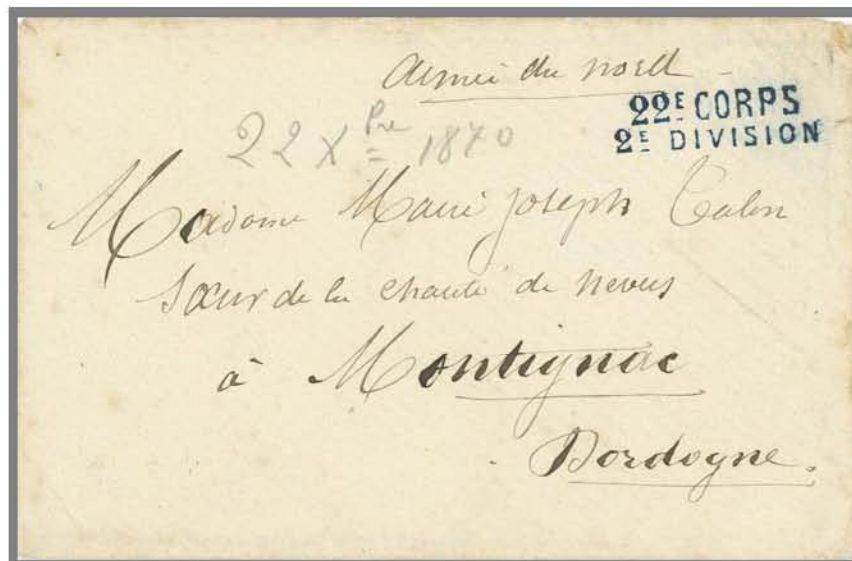 Armée du nord
22E CORPS
2E DIVISION
22 Xbre 1870
Madame Marie Joseph
Sœur de la charité de nevers
à Montignac
Dordogne.